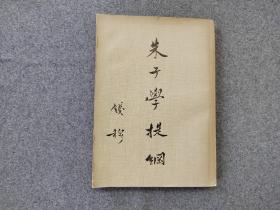 朱子學提綱
錢穆